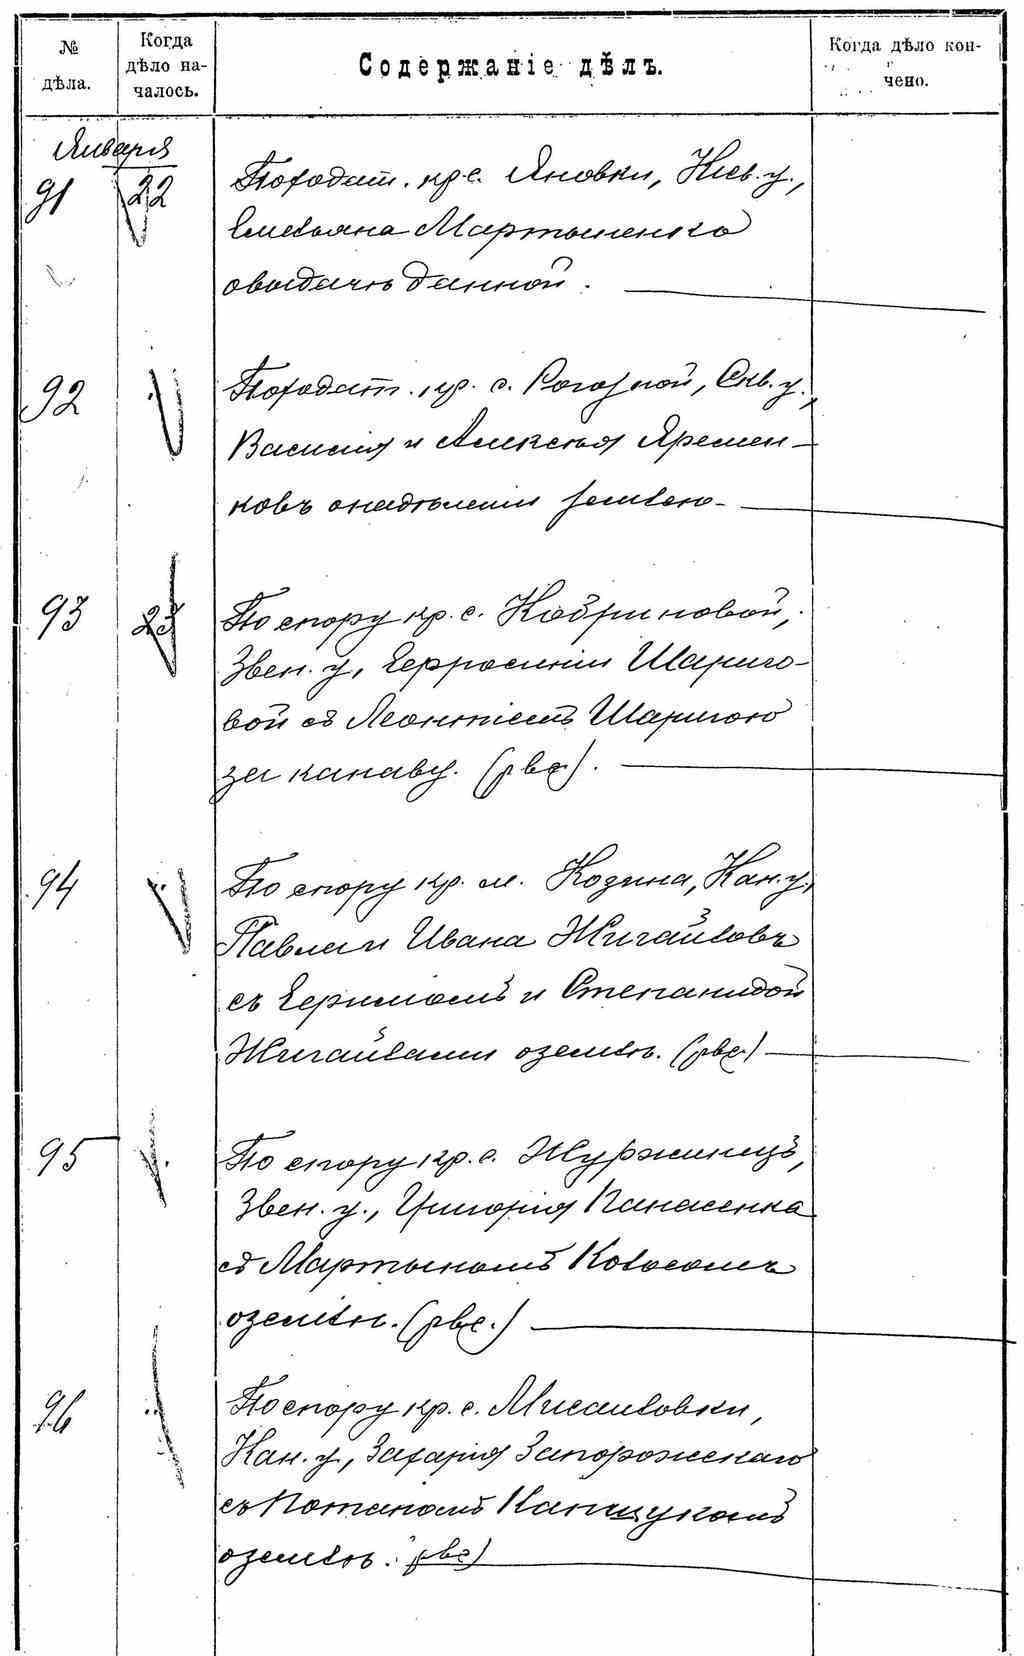 № дѣла.
Когда дѣло началось.
Содержаніе дѣлъ.
Когда дѣло кончено.
Января
91 22 По ходат. кр. с. Яновки, Кіев. у.,
Емельяна Мартыненко
о выдачѣ данной.
92 " По ходат. кр. с. Рогозной, Скв. у.,
Василія и Алексѣя Яремен-
ковъ о надѣленіи землею.
93 23 По спору кр. с. Кобриновой,
Звен. у., Ефросиніи Шариго-
вой съ Леонтіемъ Шаригою
за канаву. (рвс).
94 " По спору кр. м. Козина, Кан. у.,
Павла и Ивана Жигайловъ
съ Ефимомъ и Степанидой
Жигайлами о землѣ. (рвс)
95 " По спору кр. с. Журжинецъ,
Звен. у., Григорія Панасенка
съ Мартыномъ Колосомъ
о землѣ. (рвс.)
96 " По спору кр. с. Мисаиловки,
Кан. у., Захарія Запорожскаго
съ Потапомъ
о землѣ. (рвс)